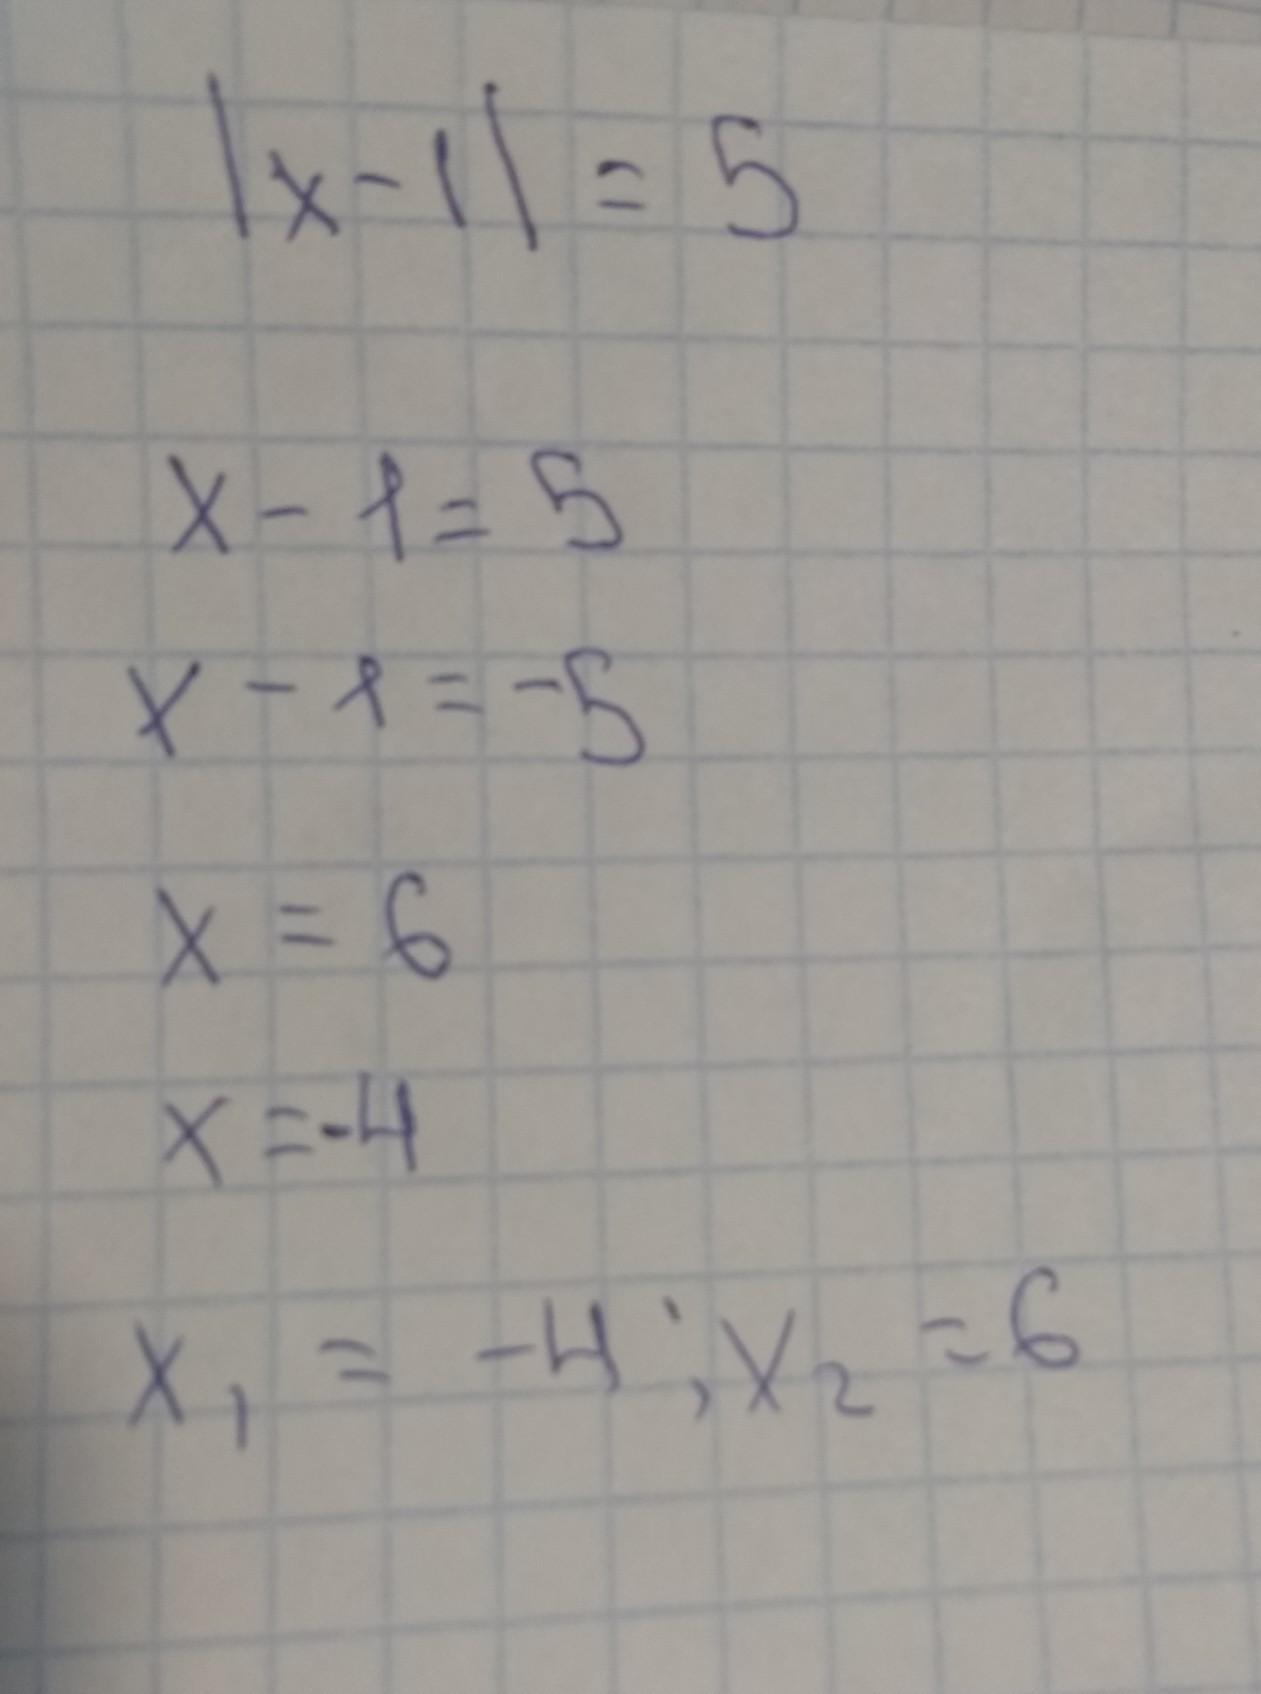 |x-1| = 5
x - 1 = 5
x - 1 = -5
x = 6
x = -4
x₁ = -4; x₂ = 6